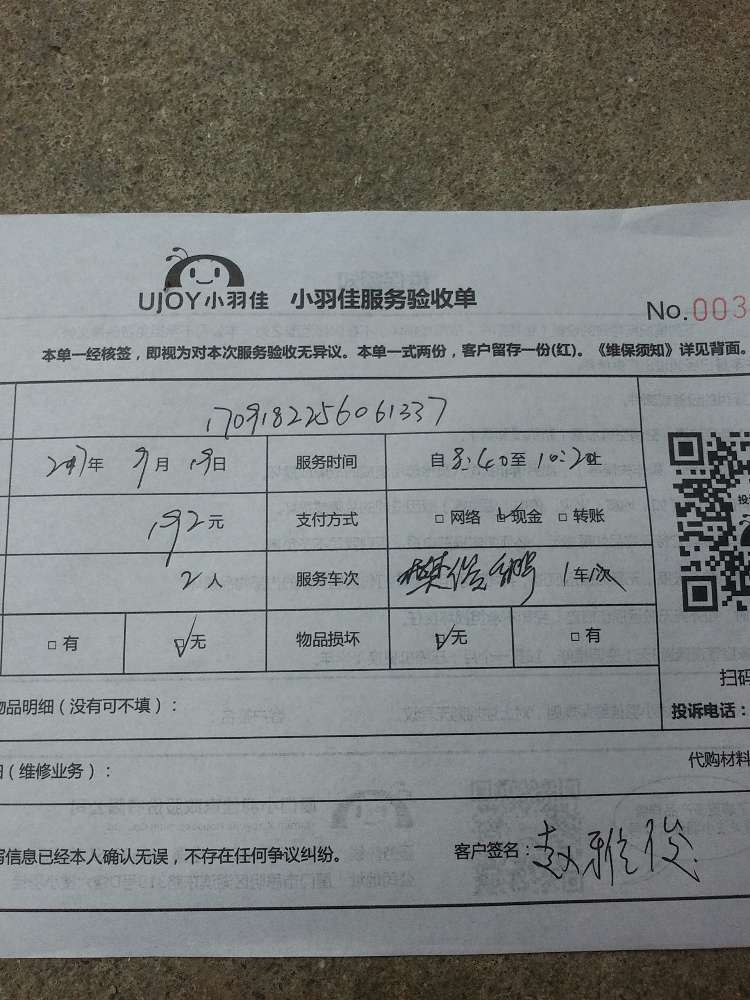 UJOY小羽佳 小羽佳服务验收单
No.003
本单一经核签，即视为对本次服务验收无异议。本单一式两份，客户留存一份(红)。《维保须知》详见背面。
1709182256061337
2017年 9月 19日 服务时间 自 8:40至 10:20止
192元 支付方式 □ 网络 ☑ 现金 □ 转账
2人 服务车次 1车1次
□ 有 ☑ 无 物品损坏 ☑ 无 □ 有
物品明细（没有可不填）：
扫码
投诉电话：
（维修业务）：
代购材料
信息已经本人确认无误，不存在任何争议纠纷。
客户签名：赵雅俊